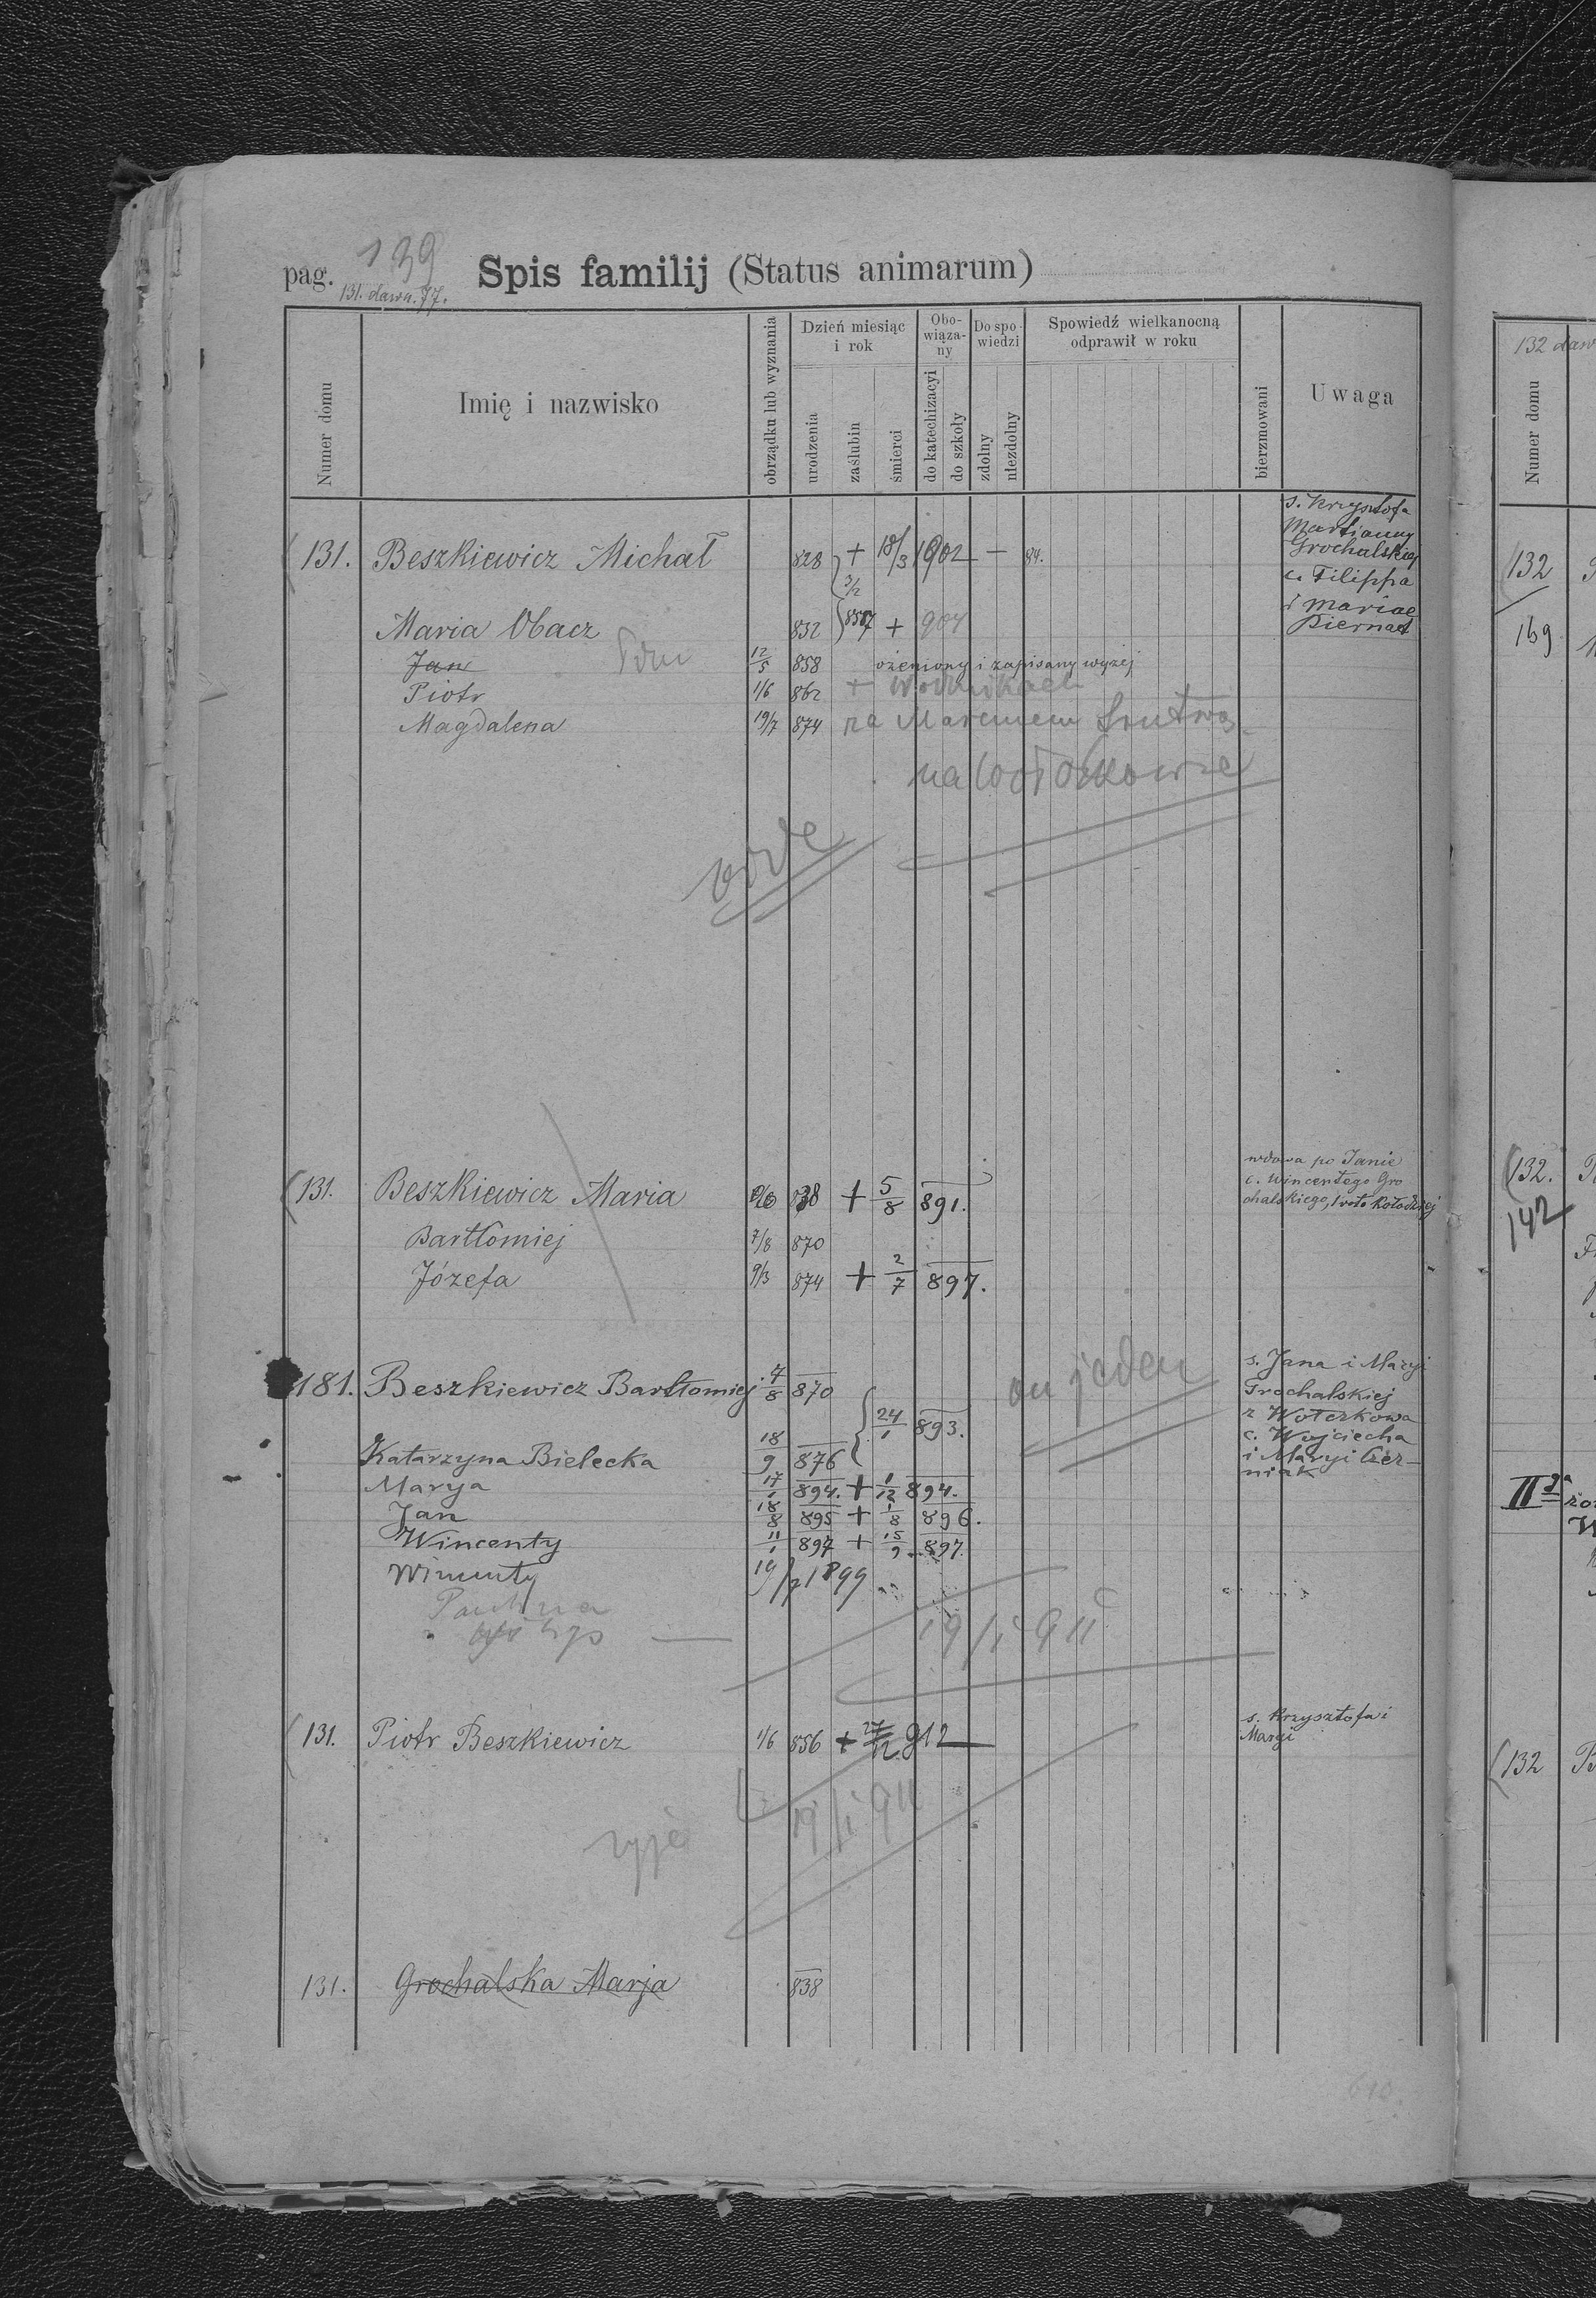 pag. 139 Spis familij (Status animarum)
131. dawn. 77.
Numer domu
Imię i nazwisko
obrządku lub wyznania
Dzień miesiąc i rok
urodzenia
zaślubin
śmierci
Obowiąza-ny
do katechizacyi
do szkoły
Do spo-wiedzi
zdolny
niezdolny
Spowiedź wielkanocną odprawił w roku
bierzmowani
Uwaga
131. Beszkiewicz Michał 828 + 18/3 1902 — 84.
s. Krzysztofa
Marianny
Grochalskiej
c. Filippa
i Mariae
Biernat
3/2
Maria Obacz 832 857 + 904
Jan 12/5 858 ożeniony i zapisany wyżej
Piotr 1/6 862 +
Magdalena 19/7 874 za Marcinem
na Wołczkowie
131. Beszkiewicz Maria 838 + 5/8 891.
wdowa po Janie
c. Wincentego Gro
chalskiego, 1 voto Kołodziej
Bartłomiej 7/8 870
Józefa 9/3 874 + 2/7 897.
181. Beszkiewicz Bartłomiej 7/8 870
on jeden
24/1 893.
s. Jana i Maryi
Grochalskiej
z Wołczkowa
c. Wojciecha
i Maryi Czer-
niak
Katarzyna Bielecka 18/9 876
Marya 17/1 894. + 1/12 894.
Jan 18/8 895 + 1/8 896.
Wincenty 11/1 897 + 15/9 897.
Wincenty 19/7 1899
Paulina
19/1 911
131. Piotr Beszkiewicz 1/6 856 + 27/12 912
s. Krzysztofa i
Maryi
19/1 911
żyje
131. Grochalska Marja 838
610
132 daw
Numer domu
132
169
132.
142
II
132